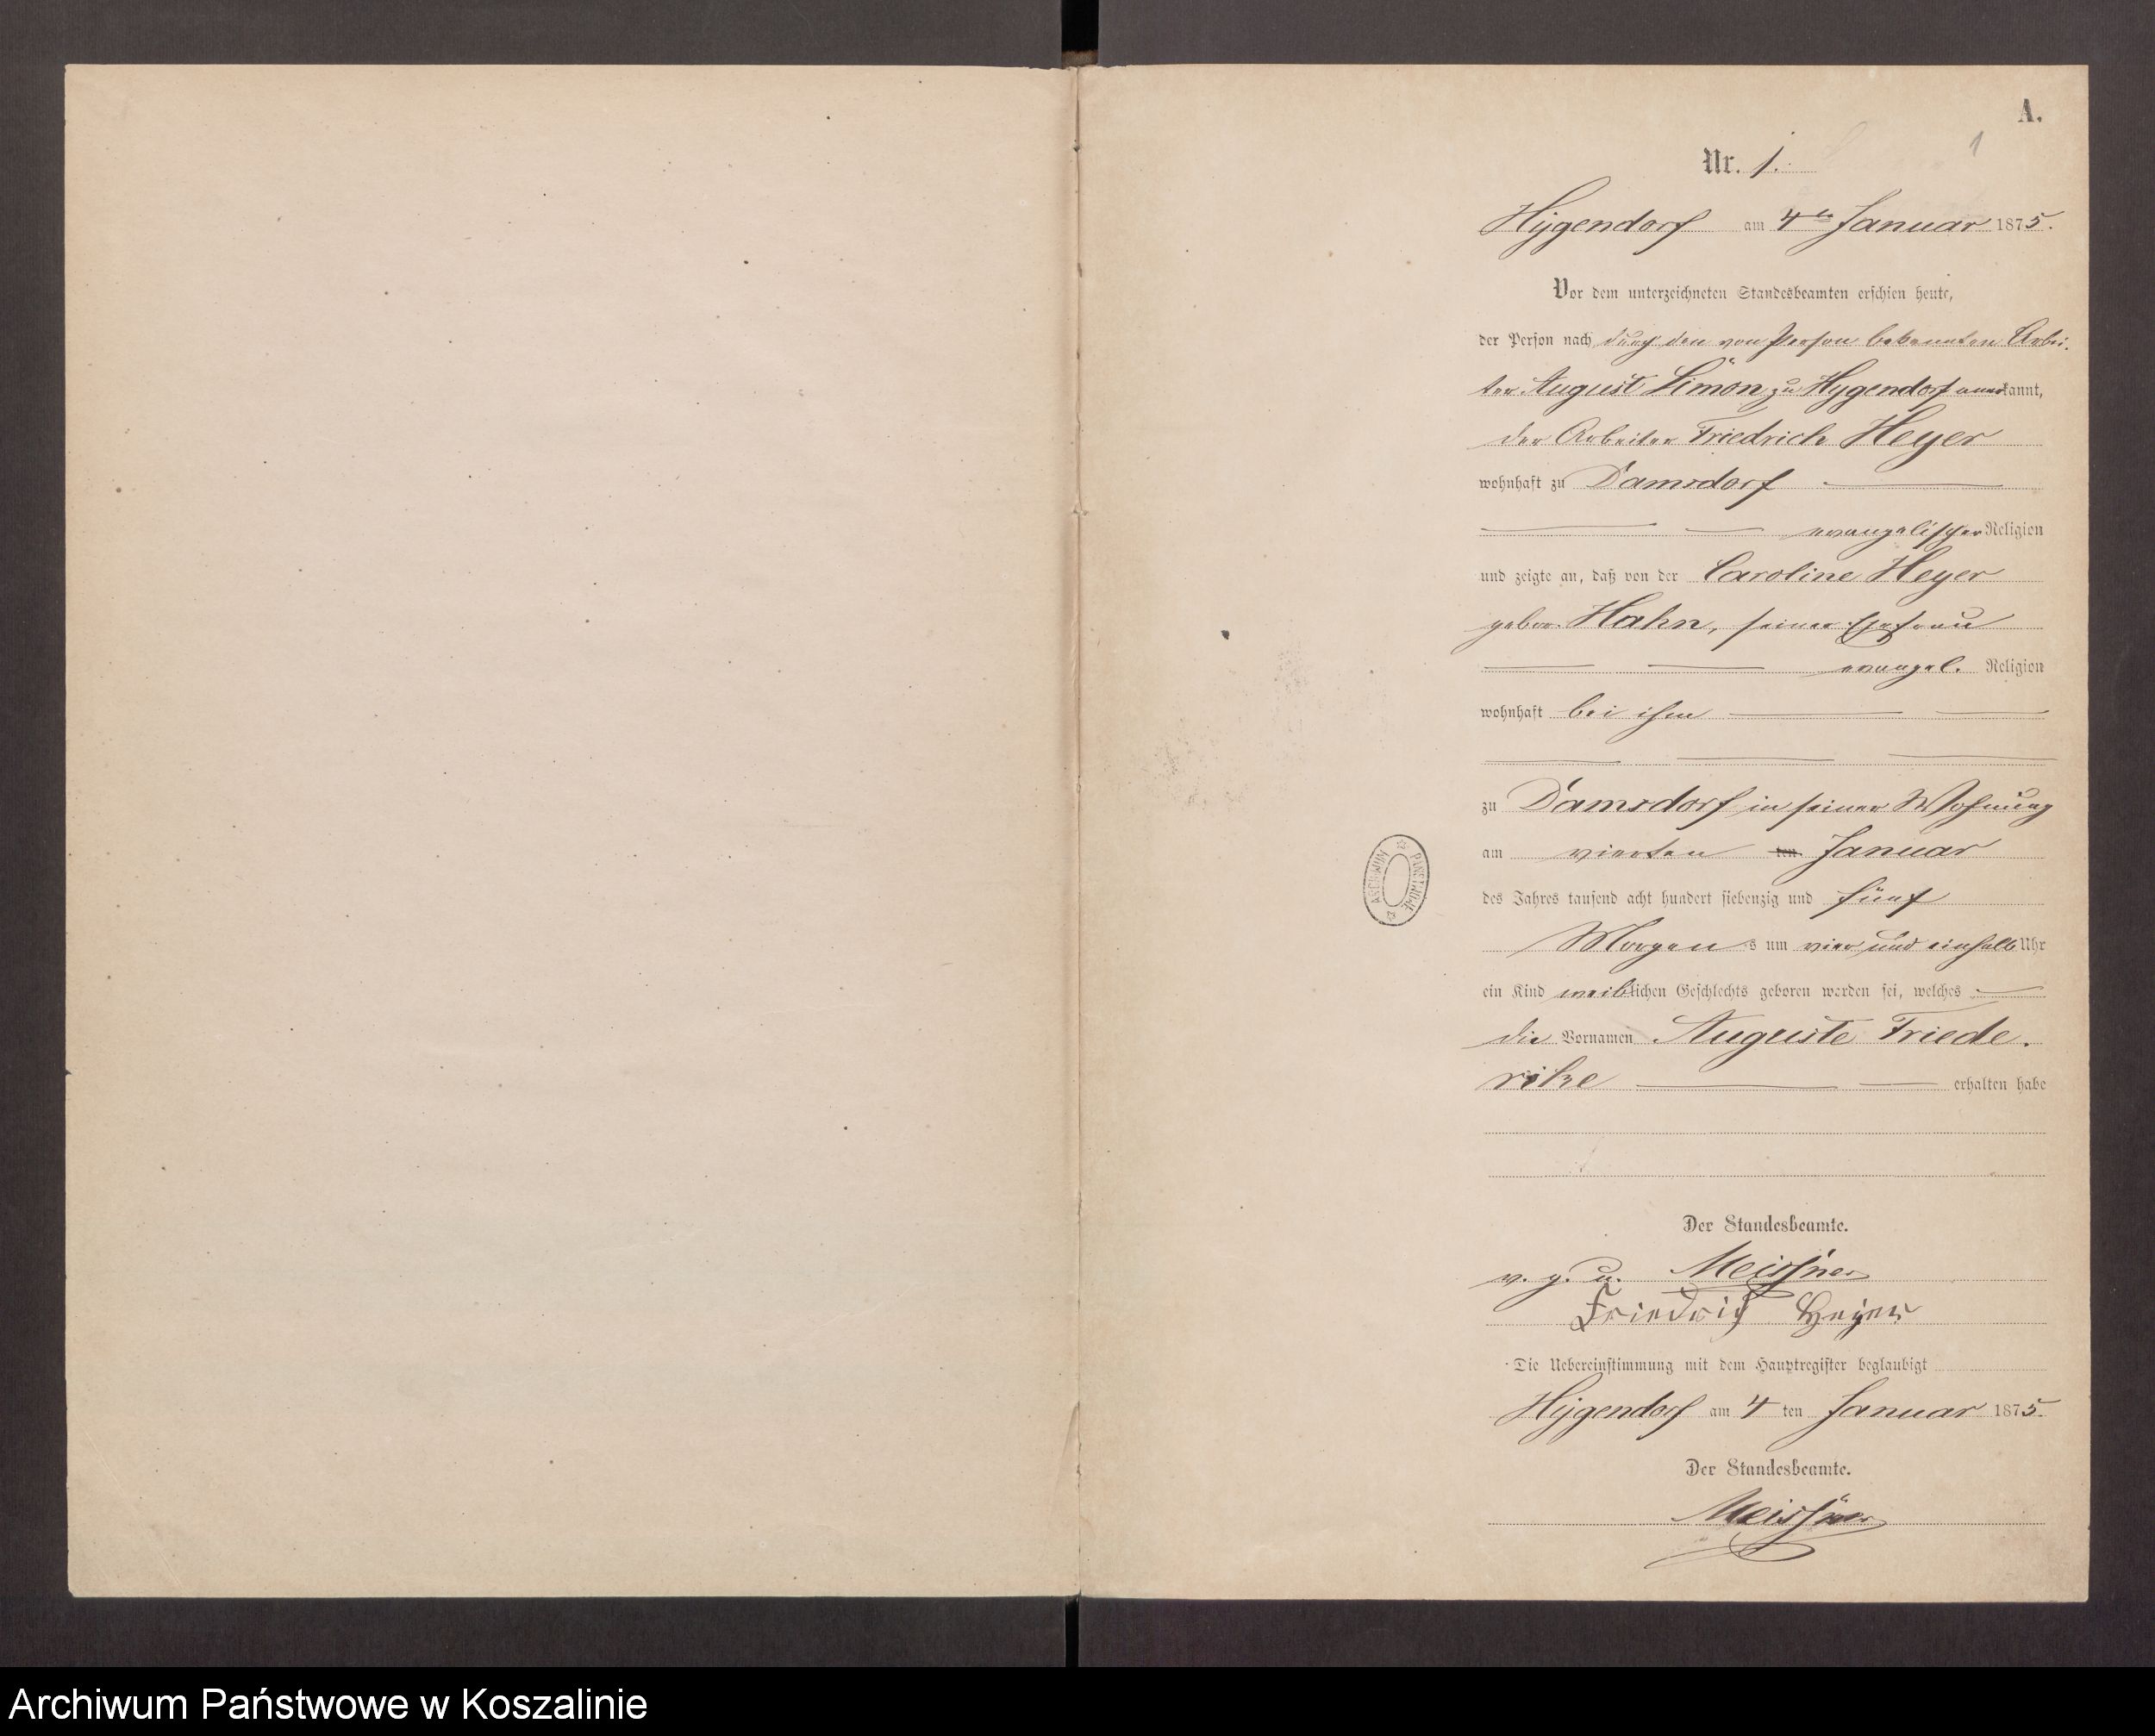 A.
1
Nr. 1.
Hygendorf am 4ten Januar 1875.
Vor dem unterzeichneten Standesbeamten erschien heute,
der Person nach durch den von Person bekannten Arbei-
ter August Limon zu Hygendorf anerkannt,
der Arbeiter Friedrich Heyer
wohnhaft zu Damsdorf
evangelischer Religion
und zeigte an, daß von der Caroline Heyer
gebor. Hahn, seiner Ehefrau
evangel. Religion
wohnhaft bei ihm
zu Damsdorf in seiner Wohnung
am vierten ten Januar
des Jahres tausend acht hundert siebenzig und fünf
Morgens um vier und einhalb Uhr
ein Kind weiblichen Geschlechts geboren worden sei, welches
die Vornamen Auguste Friede-
rike erhalten habe
ARCHIWUM PAŃSTWOWE
Der Standesbeamte.
v. g. u. Meissner
Friedrich Heyer
Die Uebereinstimmung mit dem Hauptregister beglaubigt
Hygendorf am 4 ten Januar 1875.
Der Standesbeamte.
Meissner
Archiwum Państwowe w Koszalinie